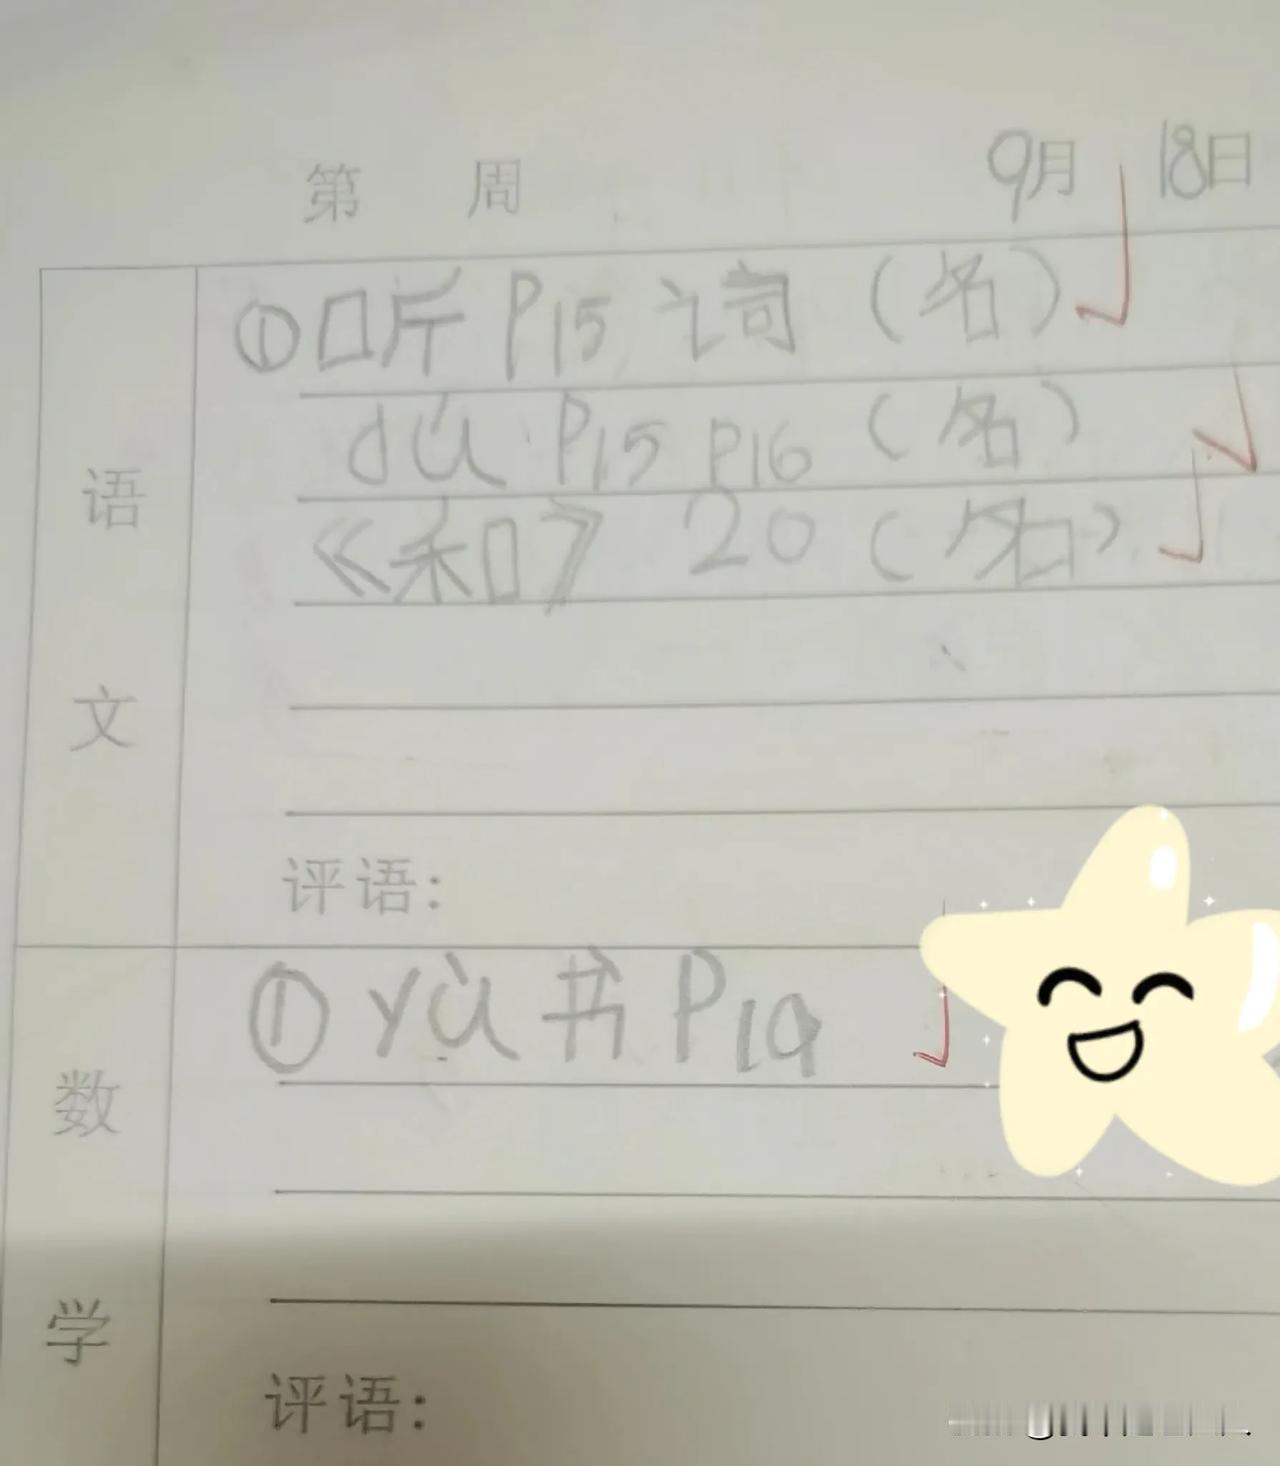 第 周 9月 18日
①听 P15 词（名）
dú P15 P16（名）
《和》 20（名）
语
文
评语：
①yù书 P19
数
学
评语：